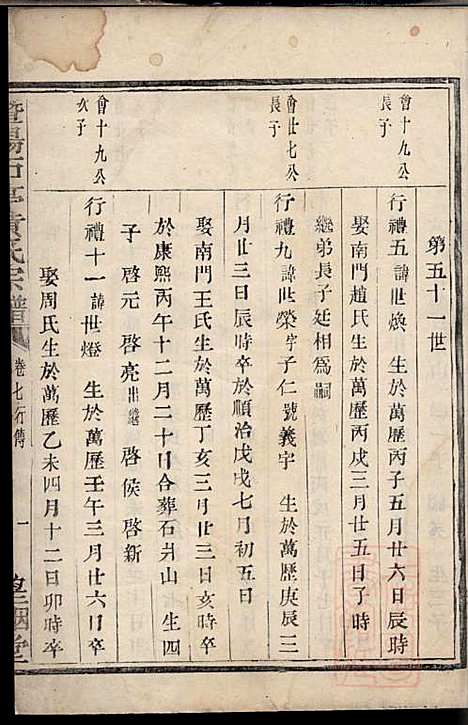 第五十一世
會十九公
長子
行禮五諱世煥 生於萬歷丙子五月廿六日辰時
娶南門趙氏生於萬歷丙戌三月廿五日子時
繼弟長子廷相為嗣
會廿七公
長子
行禮九諱世榮字子仁號義宇 生於萬歷庚辰三
月廿三日辰時卒於順治戊戌七月初五日
娶南門王氏生於萬歷丁亥三月廿三日亥時卒
於康熙丙午十二月二十日合葬石井山 生四
子 啓元 啓亮出繼 啓侯 啓新
會十九公
次子
行禮十一諱世燈 生於萬歷壬午三月廿六日卒
娶周氏生於萬歷乙未四月十二日卯時卒
暨陽石亭黃氏宗譜 卷七行傳 一